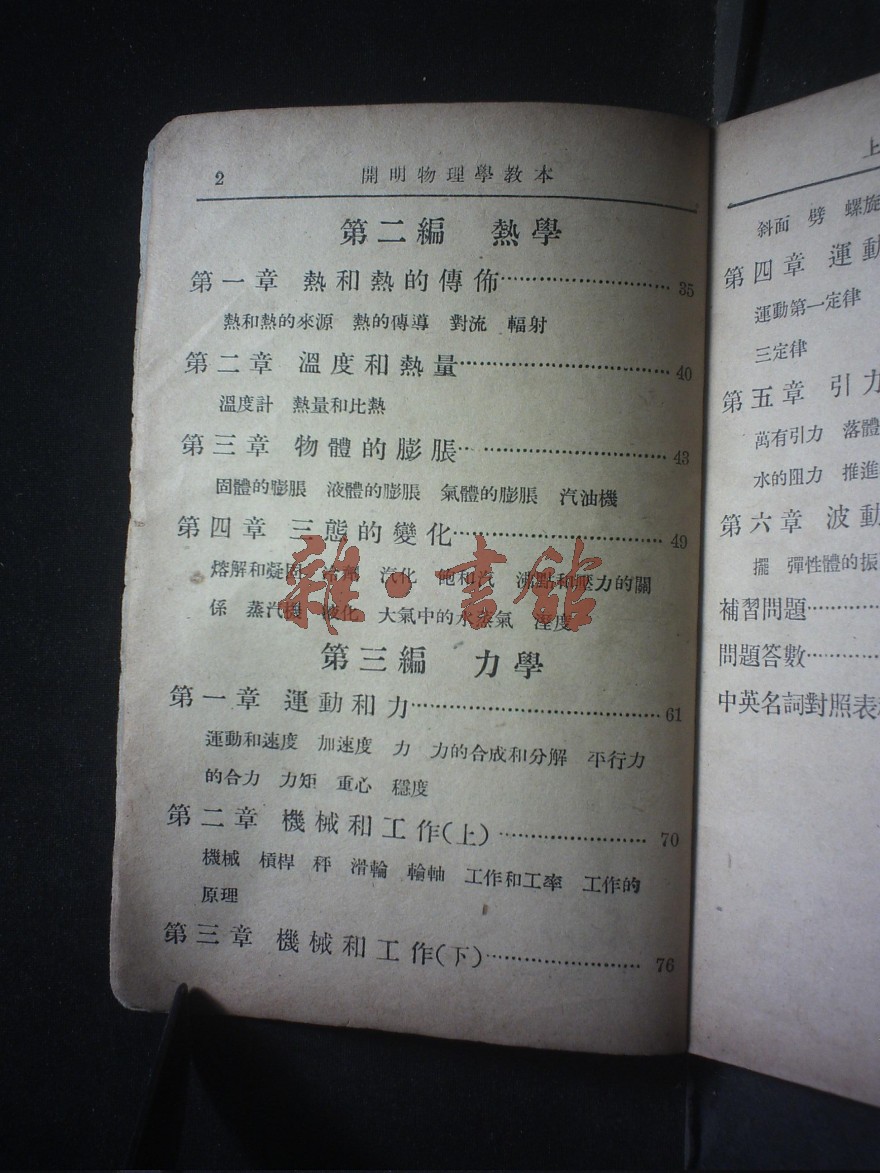 2 開明物理學教本
第二編 熱學
第一章 熱和熱的傳佈……………………35
熱和熱的來源 熱的傳導 對流 輻射
第二章 溫度和熱量……………………40
溫度計 熱量和比熱
第三章 物體的膨脹……………………43
固體的膨脹 液體的膨脹 氣體的膨脹 汽油機
第四章 三態的變化……………………49
熔解和凝固 汽化 飽和汽 沸點和壓力的關
係 蒸汽機 液化 大氣中的水蒸氣 溼度
第三編 力學
第一章 運動和力……………………61
運動和速度 加速度 力 力的合成和分解 平行力
的合力 力矩 重心 穩度
第二章 機械和工作(上)……………………70
機械 槓桿 秤 滑輪 輪軸 工作和工率 工作的
原理
第三章 機械和工作(下)……………………76
雜·書館
上
斜面 劈 螺旋
第四章 運動
運動第一定律
三定律
第五章 引力
萬有引力 落體
水的阻力 推進
第六章 波動
擺 彈性體的振
補習問題……
問題答數……
中英名詞對照表